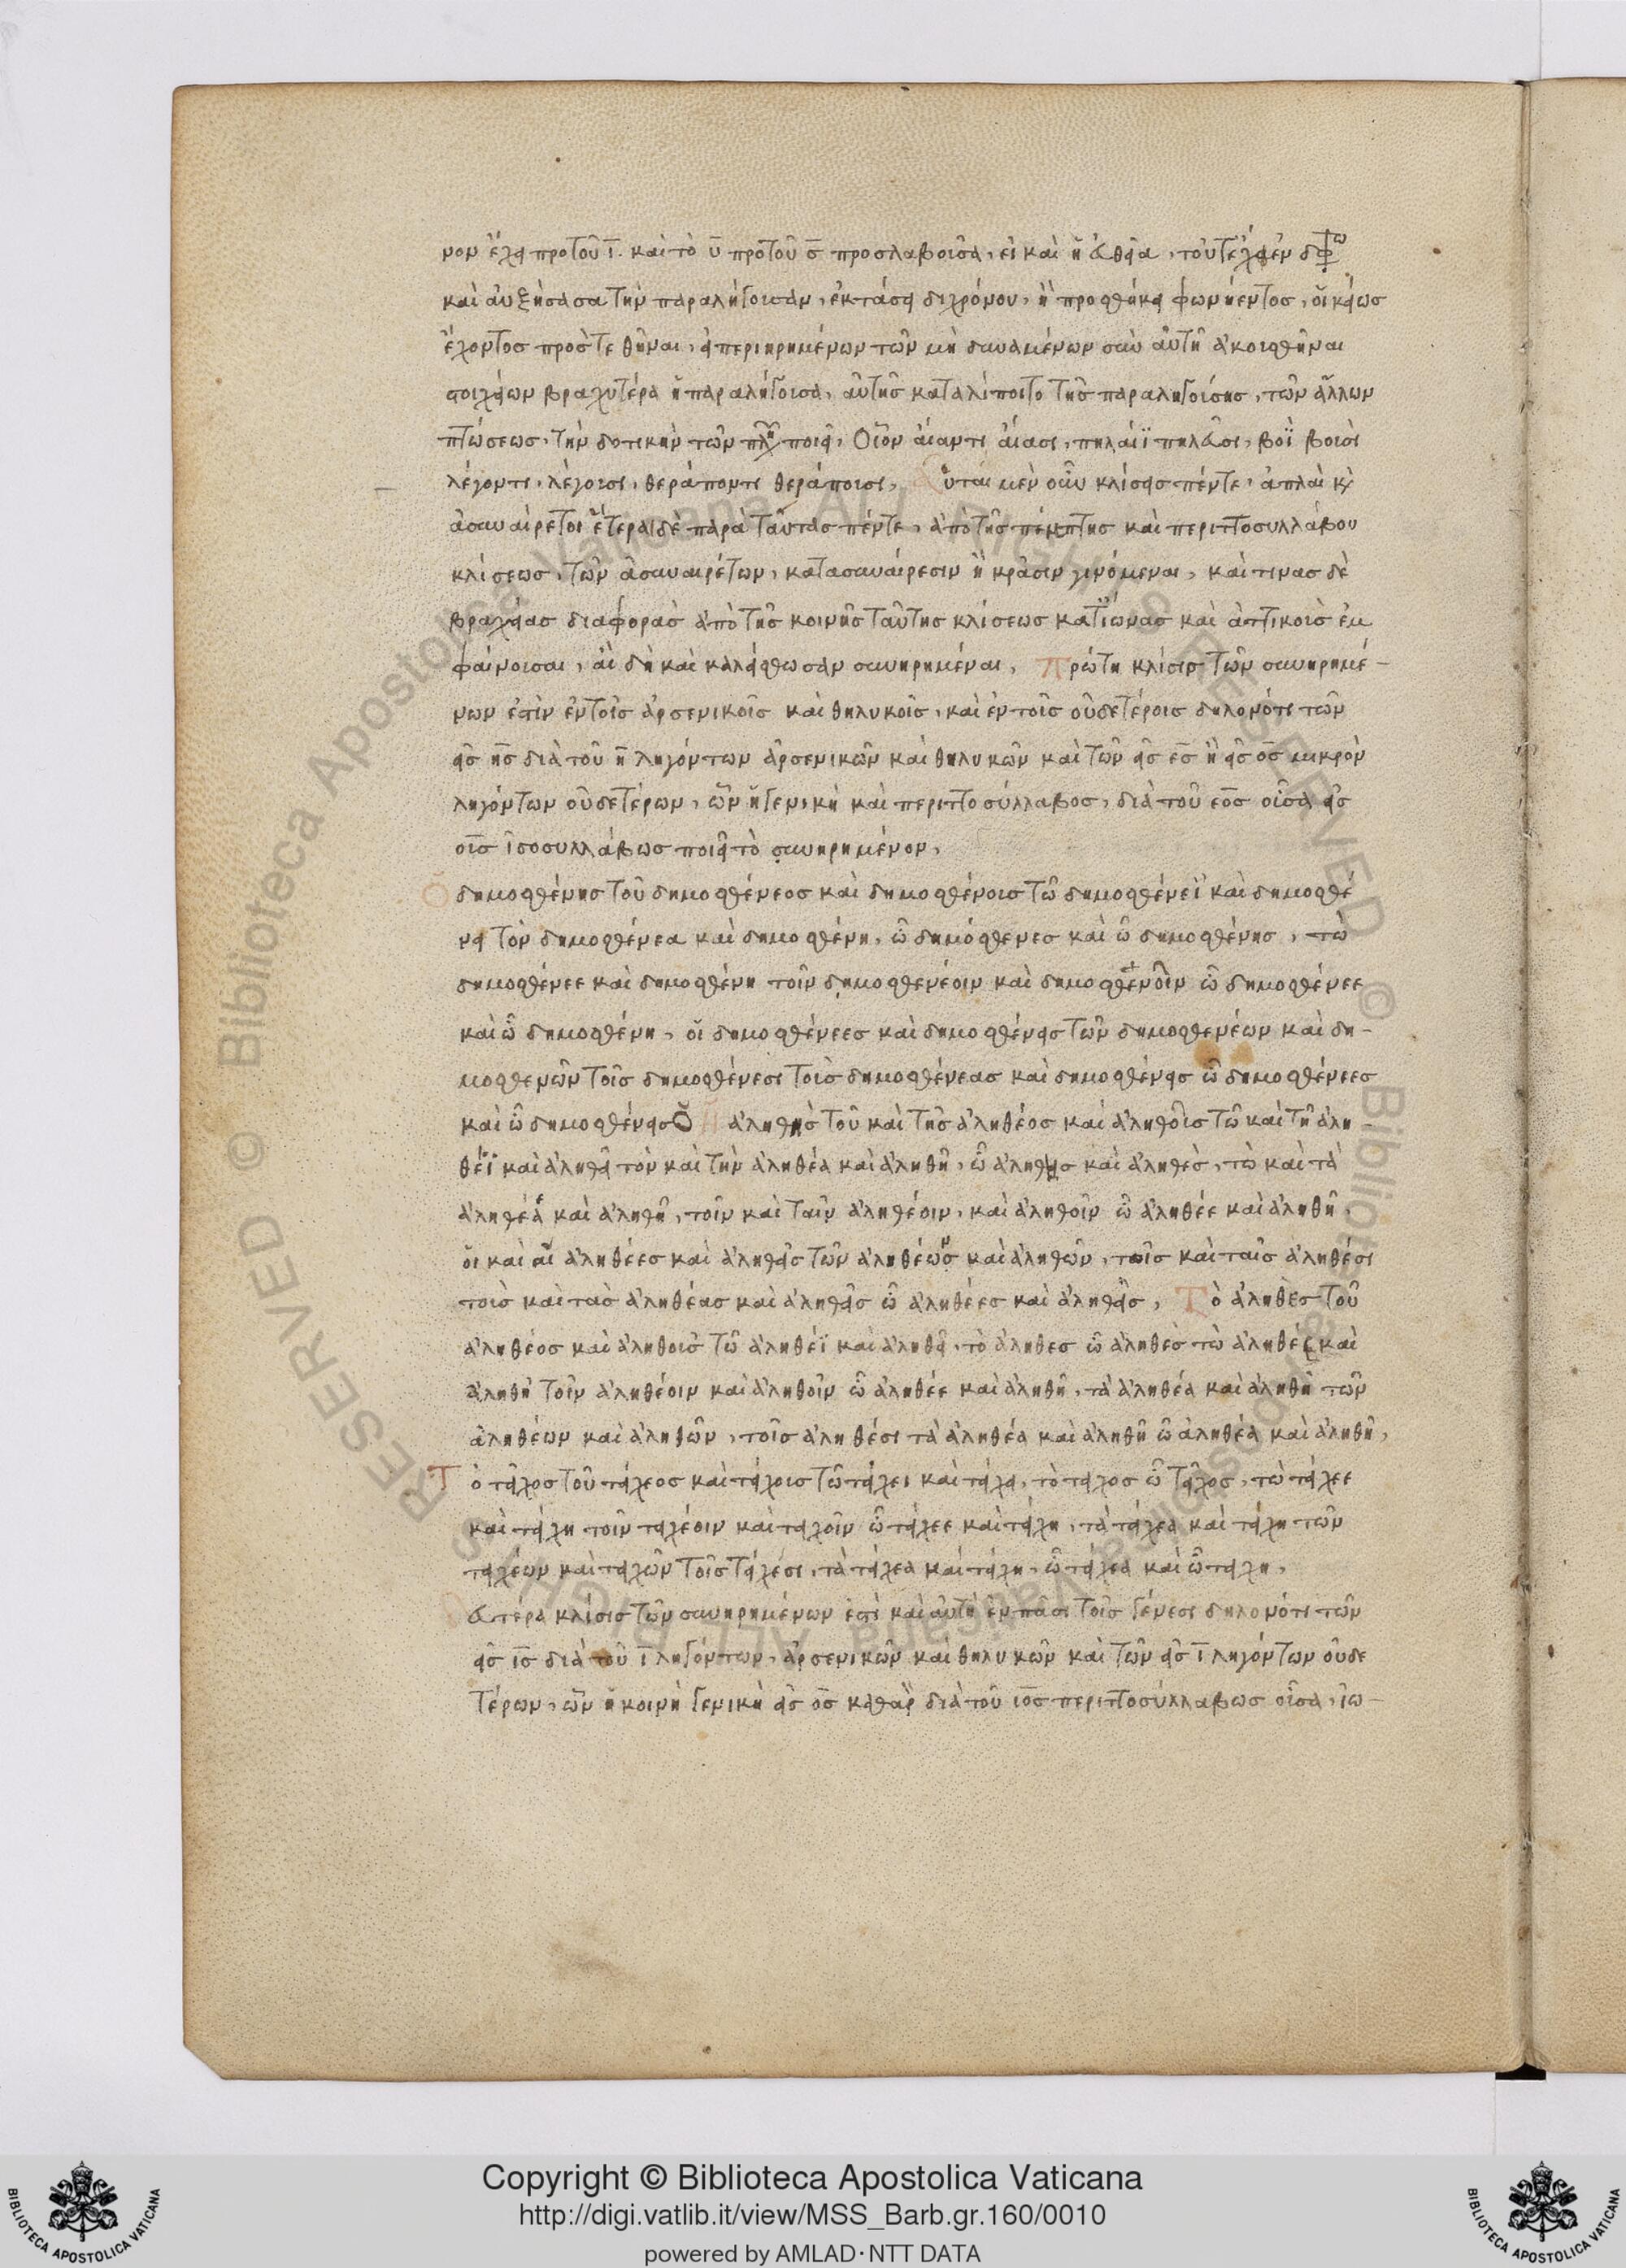 νον ἔχει προ τοῦ ι̅. καὶ τὸ υ̅ προ τοῦ σ̅ προσλαβοῦσα, εἰ καὶ ἡ εὐθεῖα, τοῦτ' ἔχει ἐν
καὶ αὐξήσασα τὴν παραλήγουσαν, ἐκτάσει διχρόνου, ἢ προσθήκει φωνήεντος, οἰκείως
ἔχοντος προστεθῆναι, ἀπεριηρημένων τῶν μὴ δυναμένων σὺν αὐτῇ ἀκουσθῆναι
στοιχείων βραχυτέρα ἡ παραλήγουσα, αὐτῆς καταλίποιτο τῆς παραληγούσης, τῶν ἄλλων
πτώσεως, τὴν δοτικὴν τῶν πλη ποιεῖ, Οἷον αἴαντι αἴασι, πηλέϊ πηλεῦσι, βοῒ βουσὶ
λέγοντι, λέγουσι, θεράποντι θεράπουσι, Αὗται μὲν οὖν κλίσεις πέντε, ἁπλαῖ κ̀
ἀσυναίρετοι ἕτεραι δὲ παρὰ ταύτας πέντε, ἀπὸ τῆς πέμπτης καὶ περιττοσυλλάβου
κλίσεως, τῶν ἀσυναιρέτων, κατασυναίρεσιν ἢ κρᾶσιν γινόμεναι, καὶ τινας δὲ
βραχείας διαφορὰς ἀπὸ τῆς κοινῆς ταύτης κλίσεως κατ' ἴωνας καὶ ἀττικοὺς ἐμ
φαίνουσαι, αἳ δὴ καὶ καλείσθωσαν συνηρημέναι, Πρώτη κλίσις τῶν συνηρημέ-
νων ἐστὶν ἐν τοῖς ἀρσενικοῖς καὶ θηλυκοῖς, καὶ ἐν τοῖς οὐδετέροις δηλονότι τῶν
εἰς ης̅ διὰ τοῦ η̅ ληγόντων ἀρσενικῶν καὶ θηλυκῶν καὶ τῶν εἰς ες̅ ἢ εἰς ος̅ μικρὸν
ληγόντων οὐδετέρων, ὧν ἡ γενικὴ καὶ περιττοσύλλαβος, διὰ τοῦ εος̅ οὖσα εἰς
ους̅ ἰσοσυλλάβως ποιεῖ τὸ συνηρημένον,
Ὁ δημοσθένης τοῦ δημοσθένεος καὶ δημοσθένους τῶ δημοσθένεϊ καὶ δημοσθέ
νει τὸν δημοσθένεα καὶ δημοσθένη, ὦ δημόσθενες καὶ ὦ δημοσθένης, τὼ
δημοσθένεε καὶ δημοσθένη τοῖν δημοσθενέοιν καὶ δημοσθενοῖν ὦ δημοσθένεε
καὶ ὦ δημοσθένη, οἱ δημοσθένεες καὶ δημοσθένεις τῶν δημοσθενέων καὶ δη-
μοσθενῶν τοῖς δημοσθένεσι τοὺς δημοσθένεας καὶ δημοσθένεις ὦ δημοσθένεες
καὶ ὦ δημοσθένεις Ὁ ἀληθὴς τοῦ καὶ τῆς ἀληθέος καὶ ἀληθοῦς τῶ καὶ τῇ ἀλη-
θέϊ καὶ ἀληθεῖ τὸν καὶ τὴν ἀληθέα καὶ ἀληθῆ, ὦ ἀληθης καὶ ἀληθὲς, τὼ καὶ τὰ
ἀληθέα καὶ ἀληθῆ, τοῖν καὶ ταῖν ἀληθέοιν, καὶ ἀληθοῖν ὦ ἀληθέε καὶ ἀληθῆ,
οἱ καὶ αἱ ἀληθέες καὶ ἀληθεῖς τῶν ἀληθέων καὶ ἀληθῶν, τοῖς καὶ ταῖς ἀληθέσι
τοὺς καὶ τὰς ἀληθέας καὶ ἀληθεῖς ὦ ἀληθέες καὶ ἀληθεῖς, Τὸ ἀληθὲς τοῦ
ἀληθέος καὶ ἀληθοῦς τῶ ἀληθέϊ καὶ ἀληθεῖ, τὸ ἀληθες ὦ ἀληθὲς τὼ ἀληθεε καὶ
ἀληθῆ τοῖν ἀληθέοιν καὶ ἀληθοῖν ὦ ἀληθέε καὶ ἀληθῆ, τὰ ἀληθέα καὶ ἀληθῆ τῶν
ἀληθέων καὶ ἀληθῶν, τοῖς ἀληθέσι τὰ ἀληθέα καὶ ἀληθῆ ὦ ἀληθέα καὶ ἀληθῆ,
Τὸ τεῖχος τοῦ τείχεος καὶ τείχους τῶ τείχει καὶ τείχει, τὸ τειχος ὦ τεῖχος, τὼ τείχεε
καὶ τείχη τοῖν τειχέοιν καὶ τειχοῖν ὦ τείχεε καὶ τείχη, τὰ τείχεα καὶ τείχη τῶν
τειχέων καὶ τειχῶν τοῖς τείχεσι, τὰ τείχεα καὶ τείχη, ὦ τείχεα καὶ ὦ τειχη,
Δευτέρα κλίσις τῶν συνηρημένων ἐστὶ καὶ αὐτὴ ἐν πᾶσι τοῖς γένεσι δηλονότι τῶν
εἰς ις̅ διὰ τοῦ ι̅ ληγόντων, ἀρσενικῶν καὶ θηλυκῶν καὶ τῶν εἰς ι̅ ληγόντων οὐδε
τέρων, ὧν ἡ κοινὴ γενικὴ εἰς ος̅ καθαρ διὰ τοῦ ιος̅ περιττοσύλλαβως οὖσα, ἰω-
Copyright © Biblioteca Apostolica Vaticana
http://digi.vatlib.it/view/MSS_Barb.gr.160/0010
powered by AMLAD·NTT DATA
BIBLIOTECA APOSTOLICA VATICANA
BIBLIOTECA APOSTOLICA VATICANA